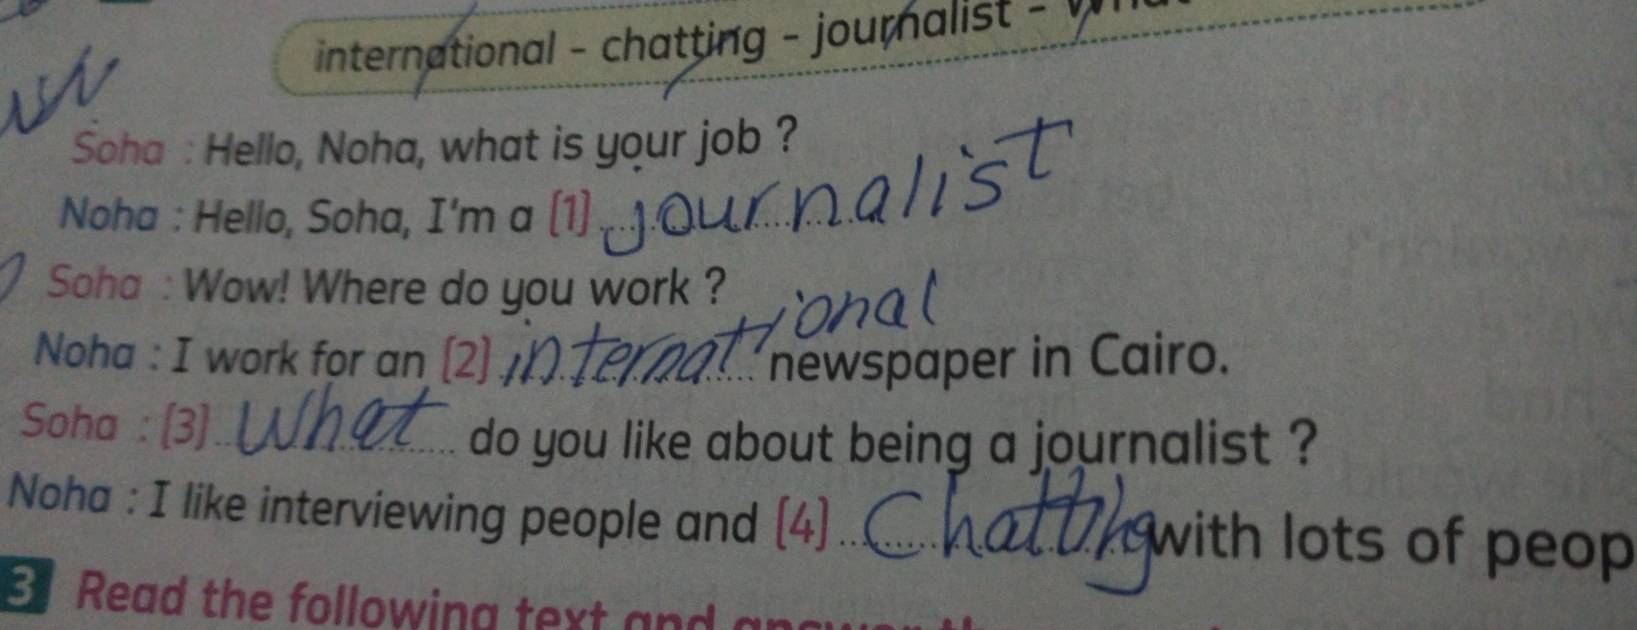 international - chatting - journalist -
Soha : Hello, Noha, what is your job ?
Noha : Hello, Soha, I'm a (1) journalist
Soha : Wow! Where do you work ?
Noha : I work for an (2) international newspaper in Cairo.
Soha : (3) What do you like about being a journalist ?
Noha : I like interviewing people and (4) Chatting with lots of peop
3 Read the following text and